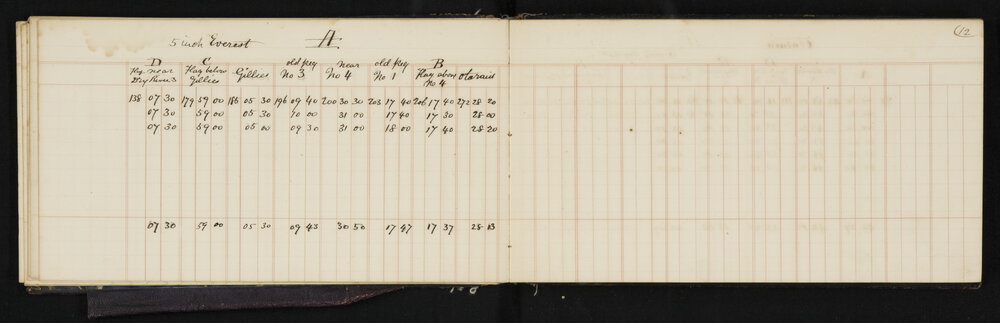 12
5 inch Everest A
D C old peg near old peg B
Flg near Flag below Gillies No 3 No 4 No 1 Flag above Otaraia
Dry River 3 Gillies No 4
138 07 30 179 59 00 185 05 30 196 09 40 200 30 30 203 17 40 206 17 40 272 28 20
07 30 59 00 05 30 10 00 31 00 17 40 17 30 28 00
07 30 59 00 05 00 09 30 31 00 18 00 17 40 28 20
07 30 59 00 05 30 09 43 30 50 17 47 17 37 28 13